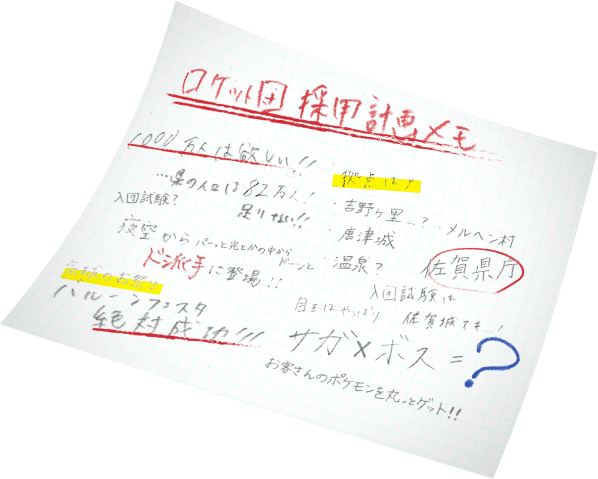 ロケット団 採用計画メモ
1000万人は欲しい!!
…県の人口は82万人!
足りない!!
入団試験?
夜空からパーッと光とかの中から
ド派手に登場!! ドーンと
のお祭り
バルーンフェスタ
絶対成功!!!
拠点は?
・吉野ヶ里…? ・メルヘン村
・唐津城
・温泉? 佐賀県庁
入団試験は
佐賀城でも…!
目玉はやっぱり
サガ×ボス=?
お客さんのポケモンを丸っとゲット!!